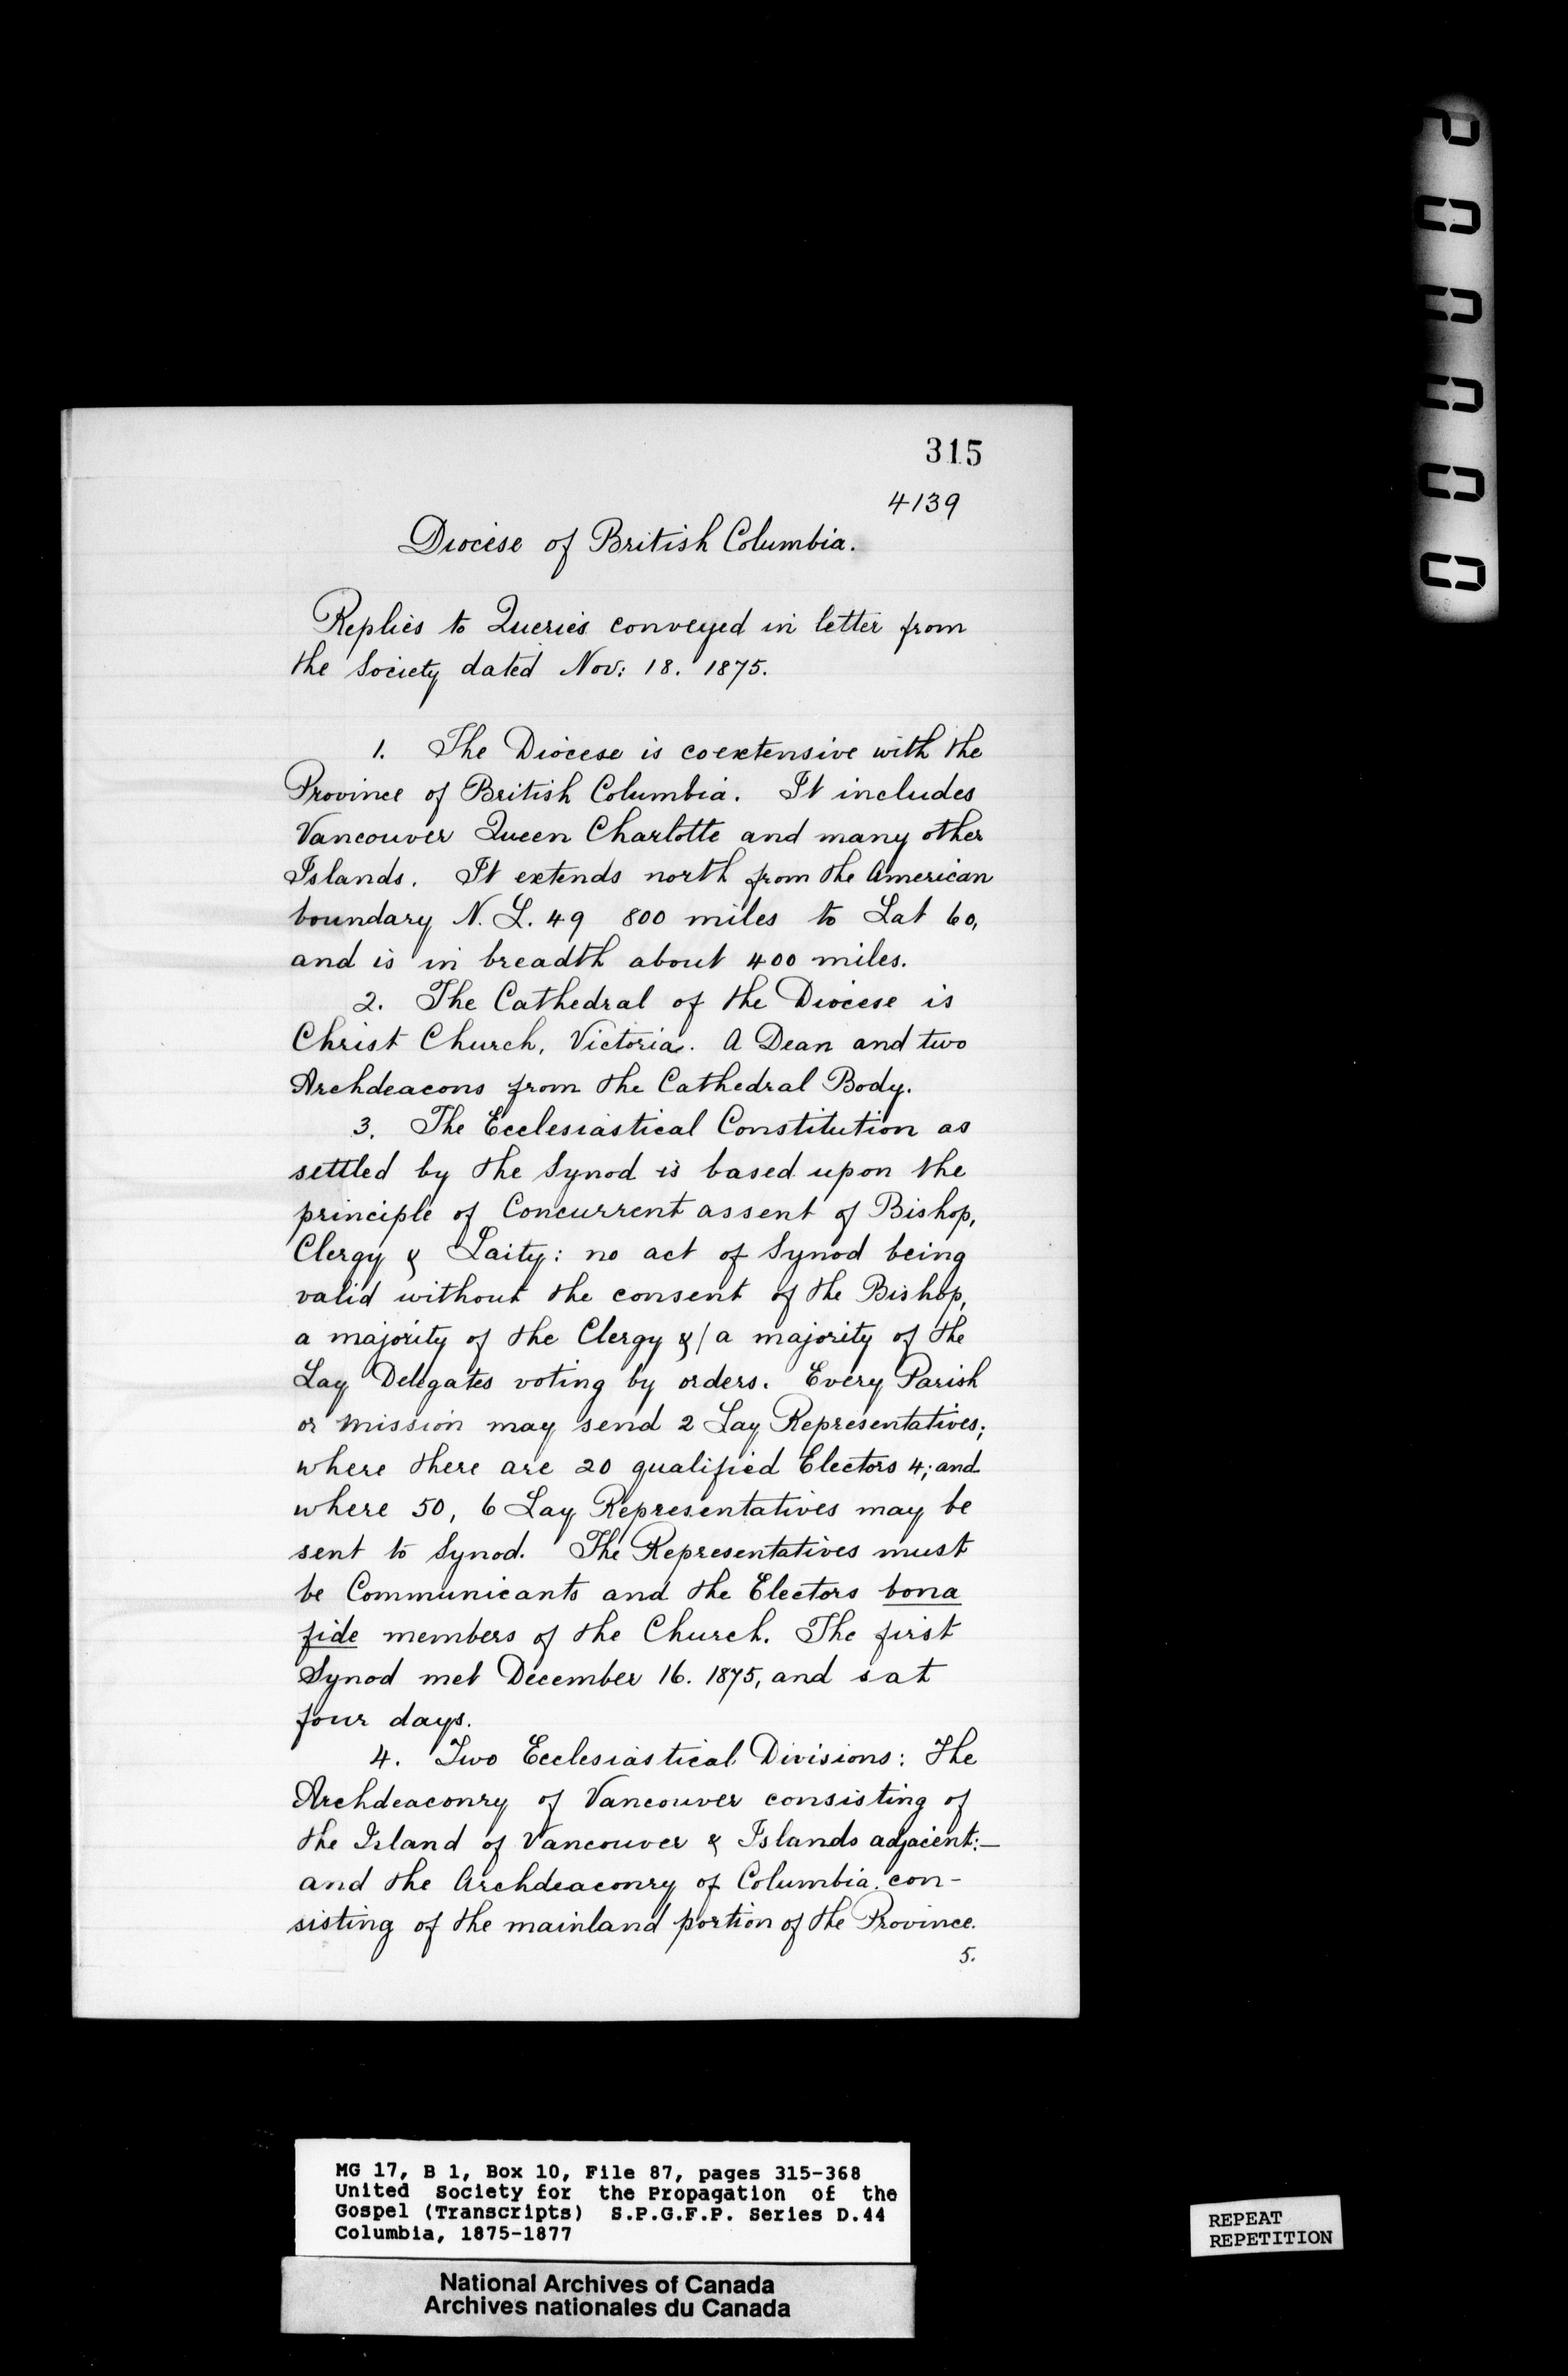 315
4139
Diocese of British Columbia.
Replies to Queries conveyed in letter from
the Society dated Nov: 18. 1875.
1. The Diocese is coextensive with the
Province of British Columbia. It includes
Vancouver Queen Charlotte and many other
Islands. It extends north from the American
boundary N. L. 49 800 miles to Lat 60,
and is in breadth about 400 miles.
2. The Cathedral of the Diocese is
Christ Church, Victoria. A Dean and two
Archdeacons from the Cathedral Body.
3. The Ecclesiastical Constitution as
settled by the Synod is based upon the
principle of Concurrent assent of Bishop,
Clergy & Laity: no act of Synod being
valid without the consent of the Bishop,
a majority of the Clergy &/a majority of the
Lay Delegates voting by orders. Every Parish
or Mission may send 2 Lay Representatives;
where there are 20 qualified Electors 4; and
where 50, 6 Lay Representatives may be
sent to Synod. The Representatives must
be Communicants and the Electors bona
fide members of the Church. The first
Synod met December 16. 1875, and sat
four days.
4. Two Ecclesiastical Divisions: The
Archdeaconry of Vancouver consisting of
the Island of Vancouver & Islands adjacent:—
and the Archdeaconry of Columbia con-
sisting of the mainland portion of the Province.
5.
P00000
MG 17, B 1, Box 10, File 87, pages 315-368
United Society for the Propagation of the
Gospel (Transcripts) S.P.G.F.P. Series D.44
Columbia, 1875-1877
National Archives of Canada
Archives nationales du Canada
REPEAT
REPETITION